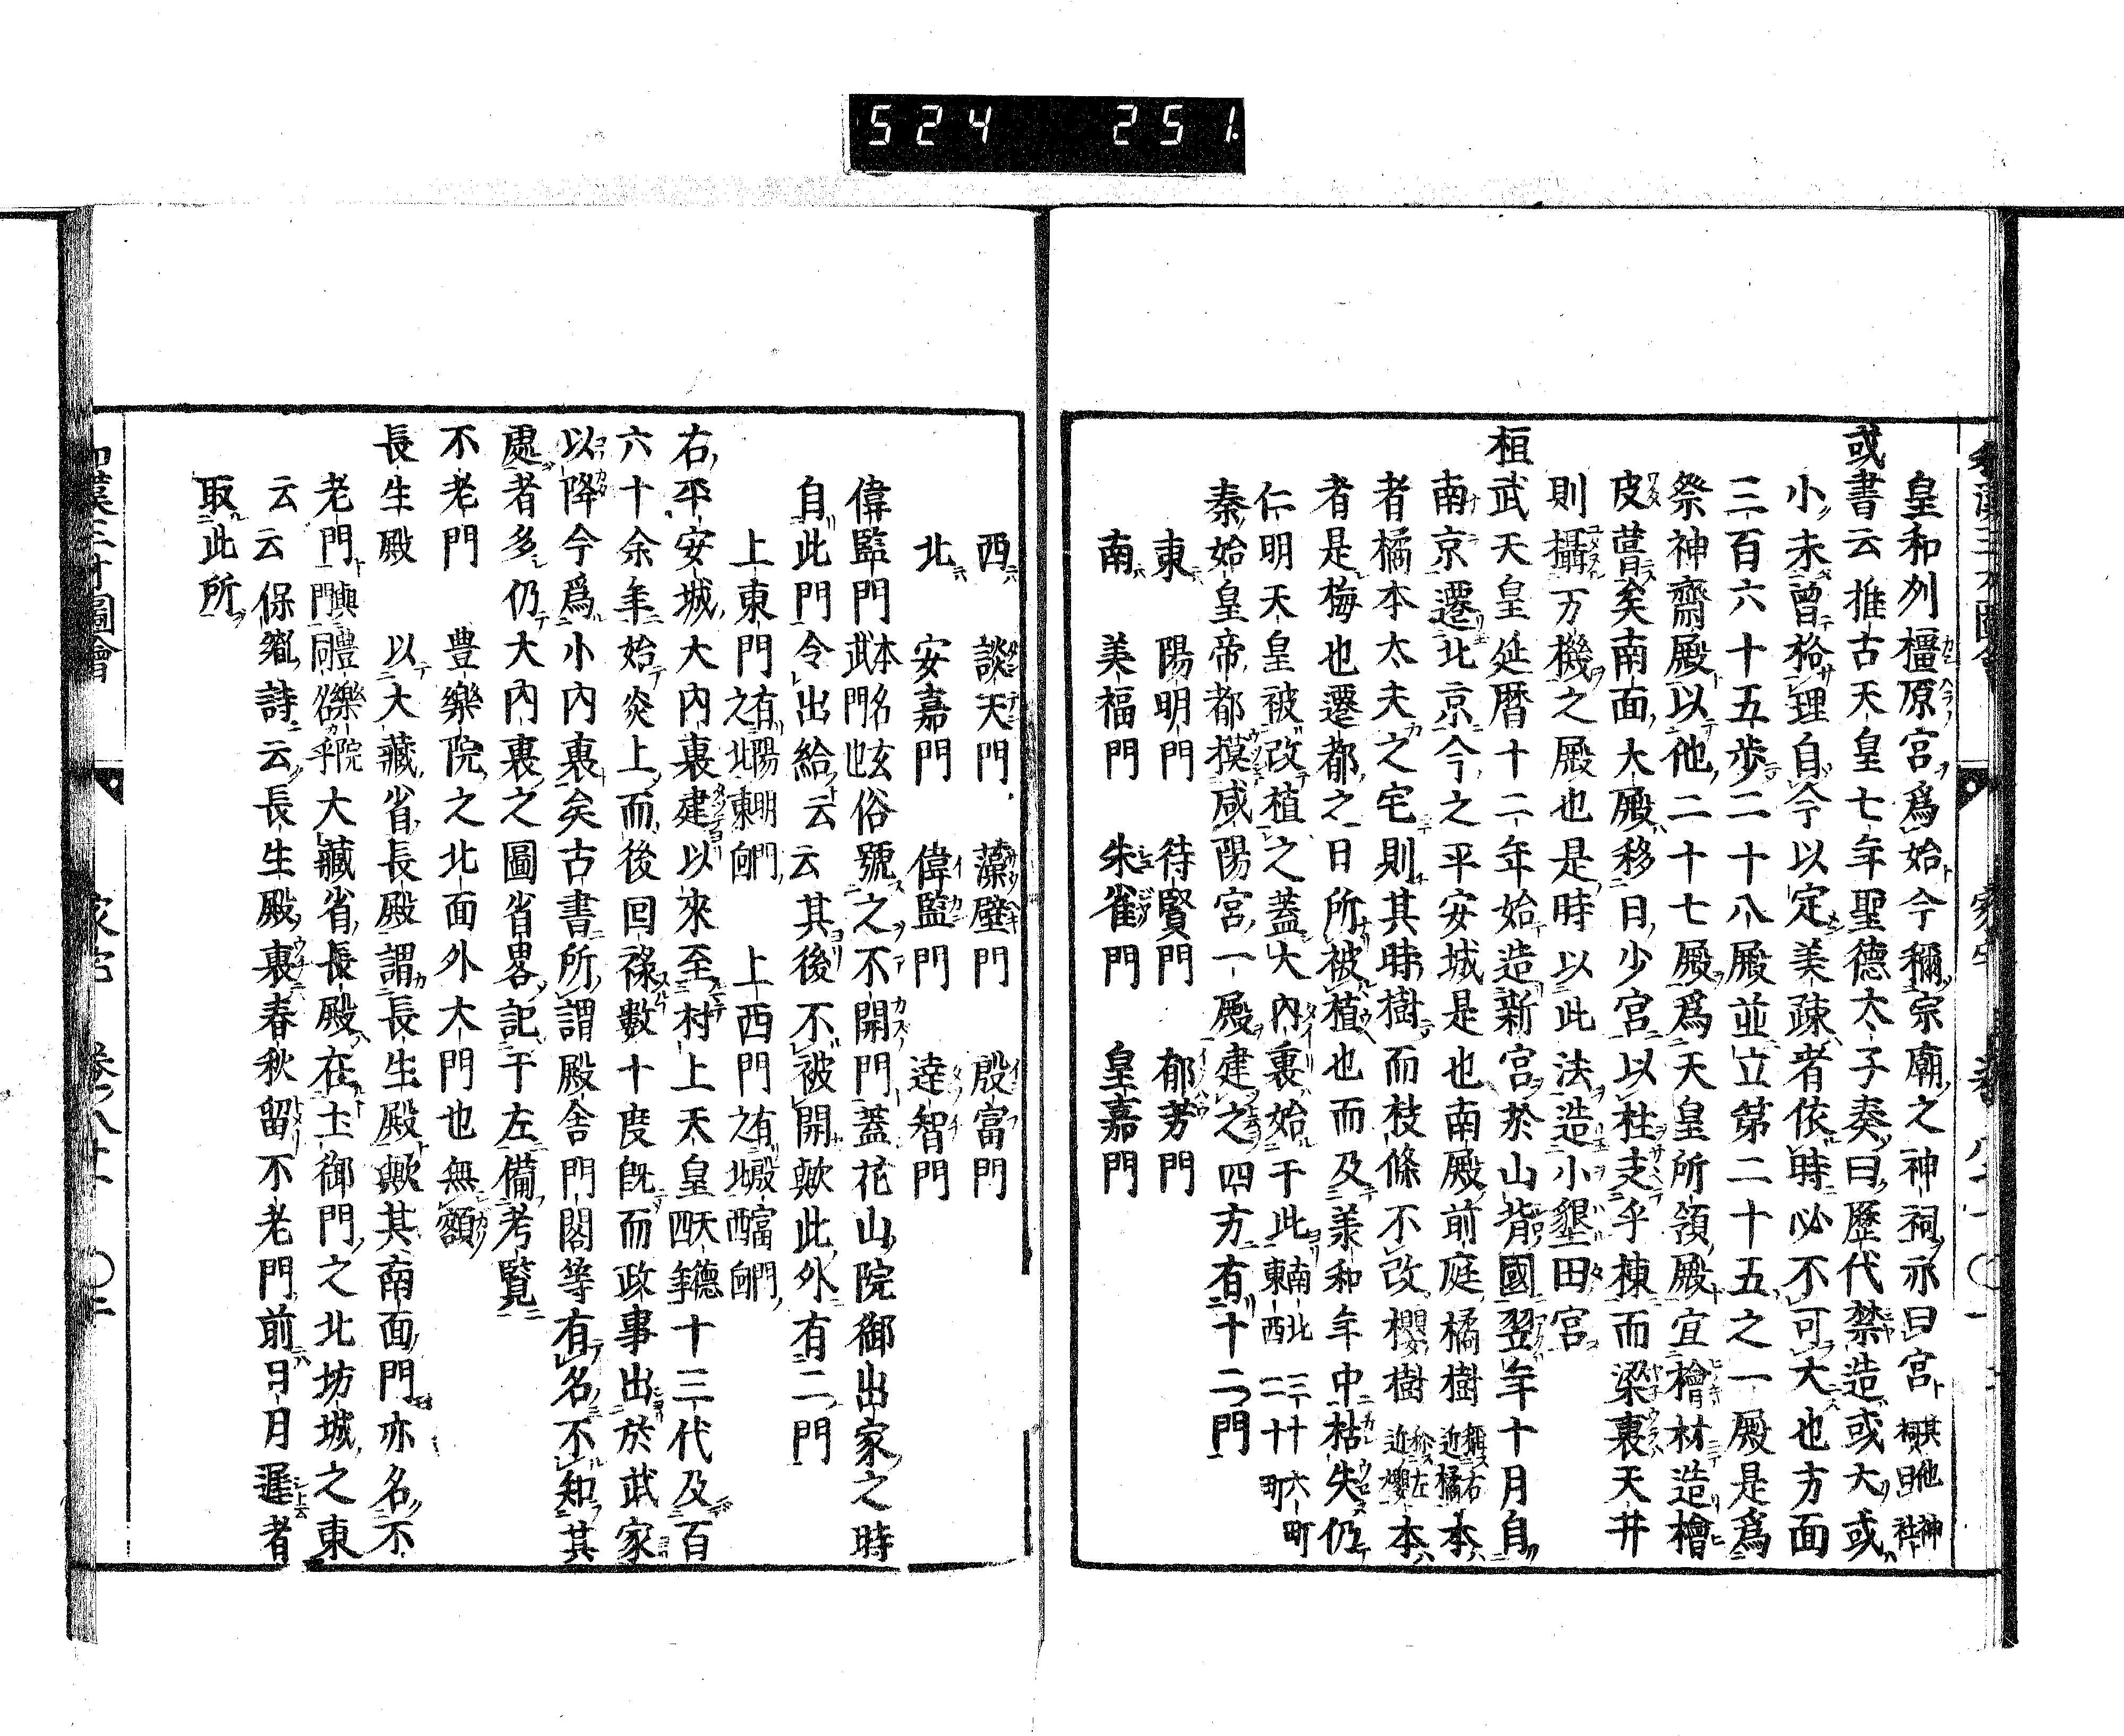 524 251.
皇和列橿原宮爲始今稱宗廟之神祠亦曰宮其他神祠曰社
或書云推古天皇七年聖德太子奏曰歷代禁造或大或
小未曾格理自今以定美疎者依時必不可大也方面
三百六十五步二十八殿並立第二十五之一殿是爲
祭神齋殿以他二十七殿爲天皇所領殿宜檜材造檜
皮葺矣南面大殿移日少宮以柱支乎棟而梁裏天井
則攝万機之殿也是時以此法造小墾田宮
桓武天皇延曆十二年始造新宮於山背國翌年十月自
南京遷北京今之平安城是也南殿前庭橘樹稱右近橘本
者橘本太夫之宅則其時樹而枝條不改櫻樹稱左近櫻本
者是梅也遷都之日所被植也而及美和年中枯失仍
仁明天皇被改植之蓋大內裏始于此南北三十六町東西二十町
秦始皇帝都摸咸陽宮一殿建之四方有十二門
東 陽明門 待賢門 郁芳門
南 美福門 朱雀門 皇嘉門
西 談天門 藻壁門 殷富門
北 安嘉門 偉監門 達智門
偉監門本名玄武門也俗號之不開門蓋花山院御出家之時
自此門令出給云云其後不被開歟此外有二門
上東門有陽明門之北東向 上西門有殷富門之北西向
右平安城大內裏建以來至村上天皇天德四年十三代及百
六十余年始炎上而後回祿數十度旣而政事出於武家
以降今爲小內裏矣古書所謂殿舍門閣等有名不知其
處者多仍大內裏之圖省畧記于左備考覽
不老門 豊樂院之北面外大門也無額
長生殿 以大藏省長殿謂長生殿歟其南面門亦名不
老門與豊樂院門同名乎大藏省長殿在土御門之北坊城之東
云云保胤詩云長生殿裏春秋留不老門前日月遲者
取此所
和漢三才圖會 家宅 卷八十一 〇二